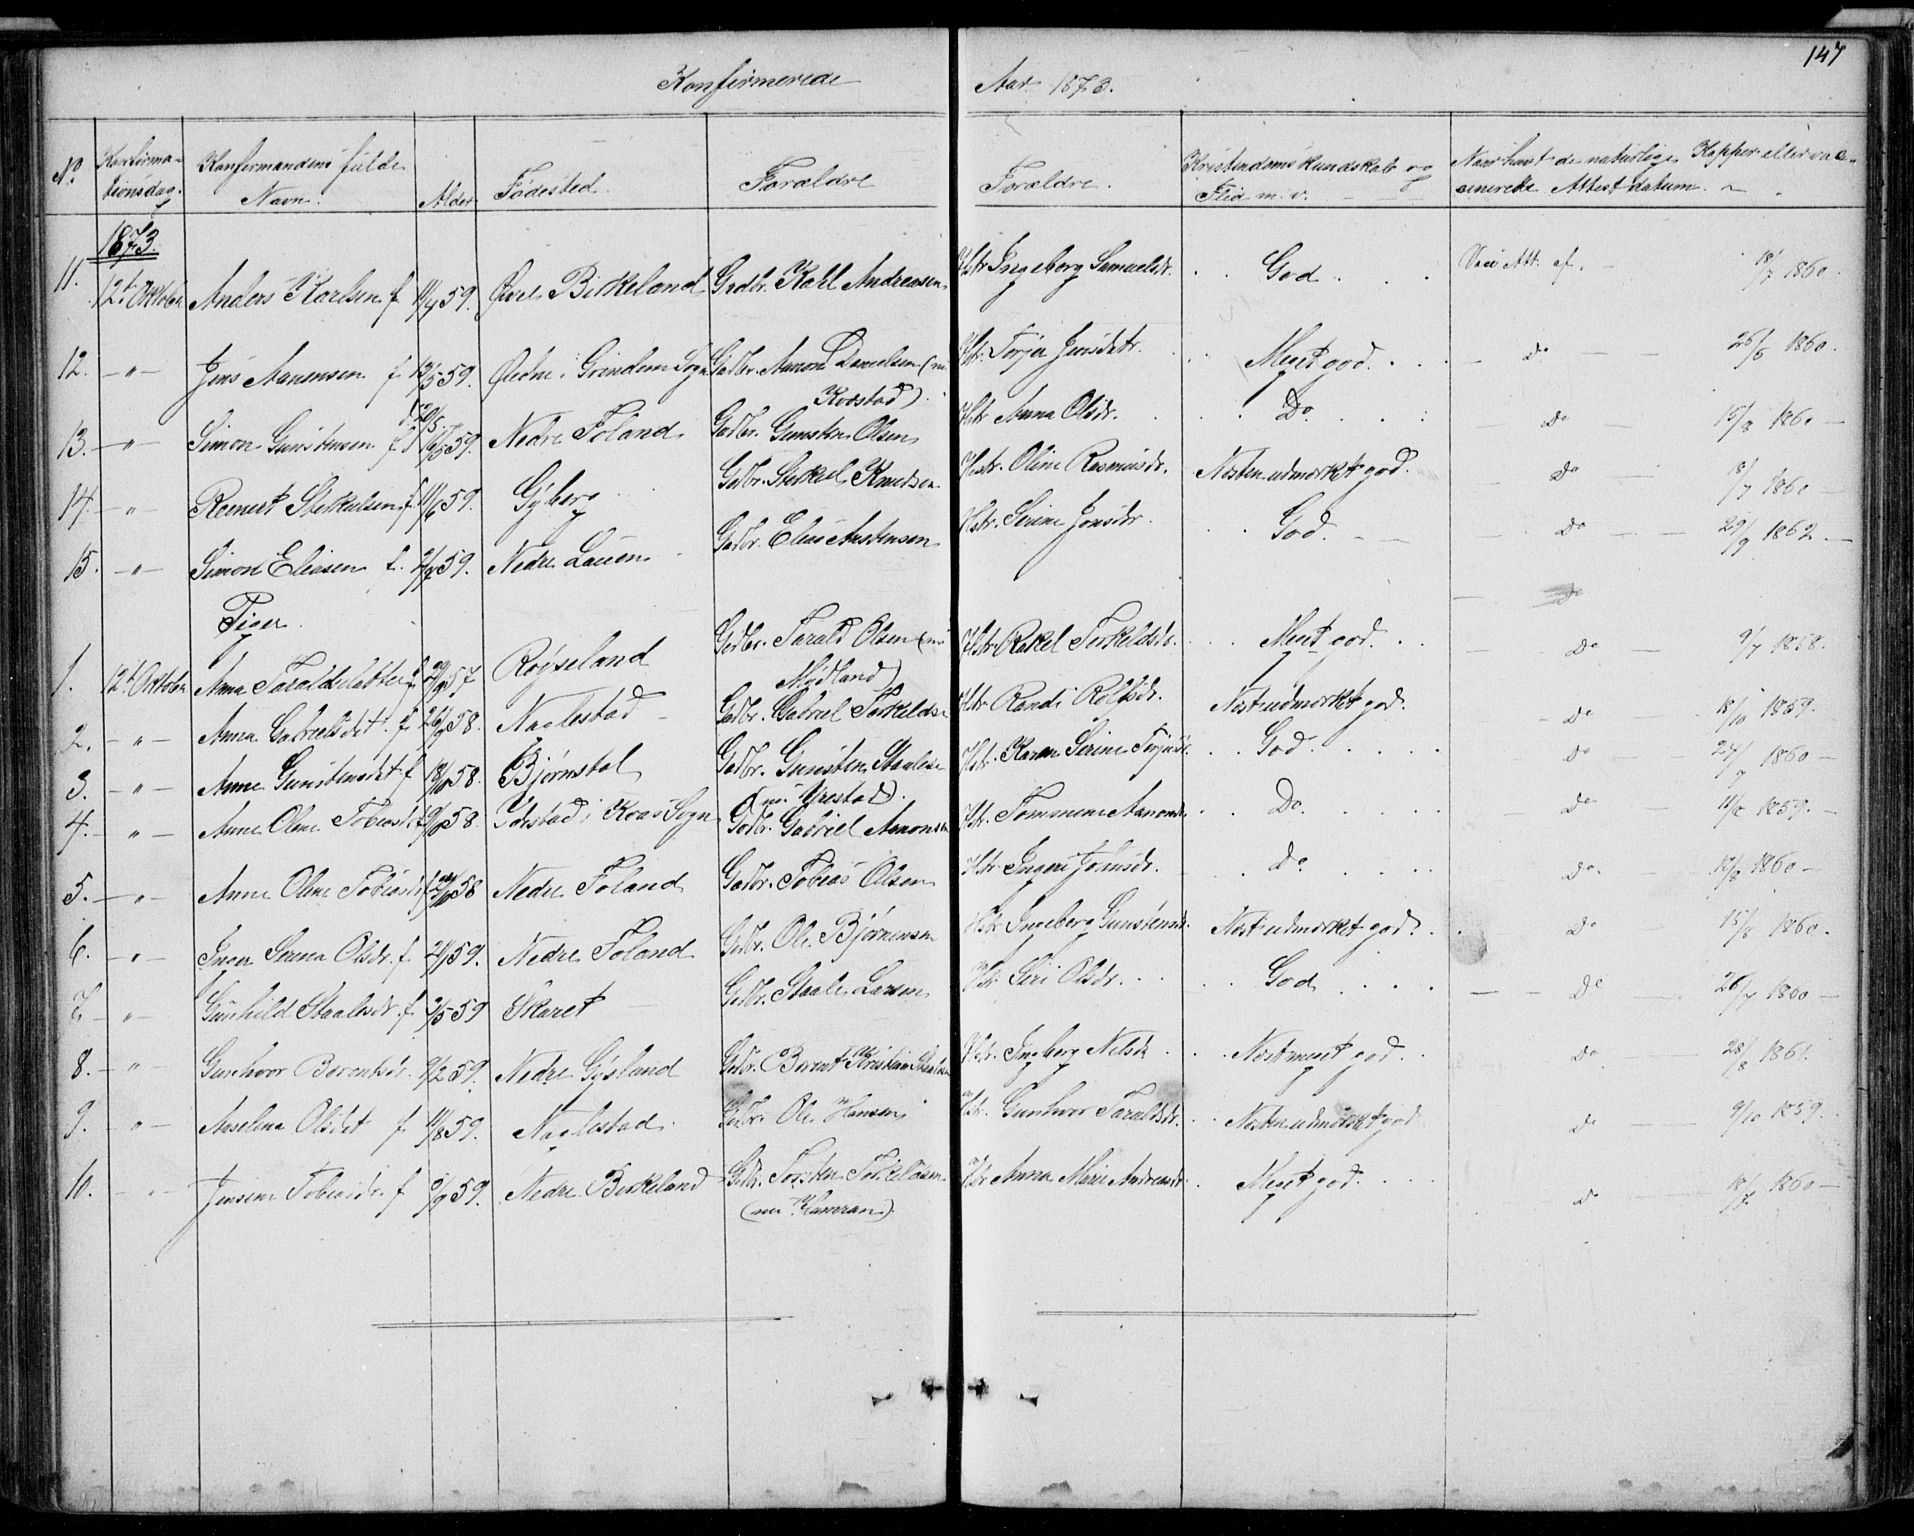 147
Konfirmerede Aar 1873.
No. Konfirma-tionsdag. Konfirmandens fulde Navn. Alder Fødested. Forældre Forældre. Kristendomskundskab og Flid m. v. Naar havt de naturlige Kopper eller vac-cinerede Attest datum.
1873.
11. 12te Oktober Anders Karlsen f. 11/4 59. Øvre Birkeland Grdbr. Karl Andreasen Hstr. Ingeborg Samuelsdr. God Vac. Att. af. 18/7 1860.
12. -"- Jens Aanensen f. 19/5 59. Grindem Sogn Gadbr. Danielsen (nu Kvostad). Hstr. Torja Jensdatr. Meget god. Do 26/6 1860.
13. -"- Simon Gunstensen f. 16/5 59. Nedre Føland Gadbr. Gunsten Olsen Hstr. Anna Olsdr. Do. Do 15/8 1860
14. -"- Reinert f. 11/6 59. Gyberg Gadbr. Knudsen Hstr. Oline Rasmusdr. Næsten udmærket god. Do 18/7 1860
15. -"- Simon Eliasen f. 59. Nedre Lauen Gadbr. Elias Austensen Hstr. Serine Jonsdr. God. Do 29/9 1862.
Piger. Do
1. 12te Oktober Anna Taraldsdatter f. 57 Røyseland Gadbr. Tarald Olsen (nu Mydland) Hstr. Rakel Torkeldsdr. Meget god. Do 9/7 1858.
2. -"- Anna Gabrielsdet. f. 26/9 58. Naglestad Gadbr. Gabriel Torkelds Hstr. Randi Rolfsdr. Næst udmærket god. Do 18/10 1859.
3. -"- Anne Gunstensdet. f. 18/10 58. Bjørnstøl Gadbr. Gunsten Staalese (nu Yrestad). Hstr. Karen Serine God. Do 24/7 1860
4. -"- Anne Oline Tobiasd. f. 58. Ydestad i Kvas Sogn Gadbr. Gabriel Aanonsen Hstr. Tommine Aanonsdr. Do. Do 1859.
5. -"- Anne Oline Tobiasd. f. 58 Nedre Føland Gadbr. Tobias Olsen Hstr. Ingeri Do Do. 1860
6. -"- Inger Serina Olsdr. f. 59. Nedre Føland Gadbr. Ole Bjørnensen Hstr. Ingeborg Gunstensdr. Næst udmærket god. Do 15/8 1860.
7. -"- Gunhild Staalesdr. f. 2/5 59 Skaret Gadbr. Staale Larsen Hstr. Siri Olsdr. God Do 26/7 1860
8. -"- Gunhvor Berentsdr. 9/2 59. Nedre Gysland Gadbr. Berent Kristian Hstr. Ingborg Nelsdr. Næst meget god. Do 28/8 1861.
9. -"- Aaselina Olsdet f. 11/8 59. Naglestad. Gadbr. Ole Hansen Hstr. Gunhvor Taraldsdr. Næsten udmærket god Do 9/10 1859.
10. -"- Jensine Tobiasdr. f. 59. Nedre Birkeland Gadbr. Torsten Tobiassen (nu Hameran). Hstr. Anna Marie Andreasdr. Meget god. Do 18/7 1860